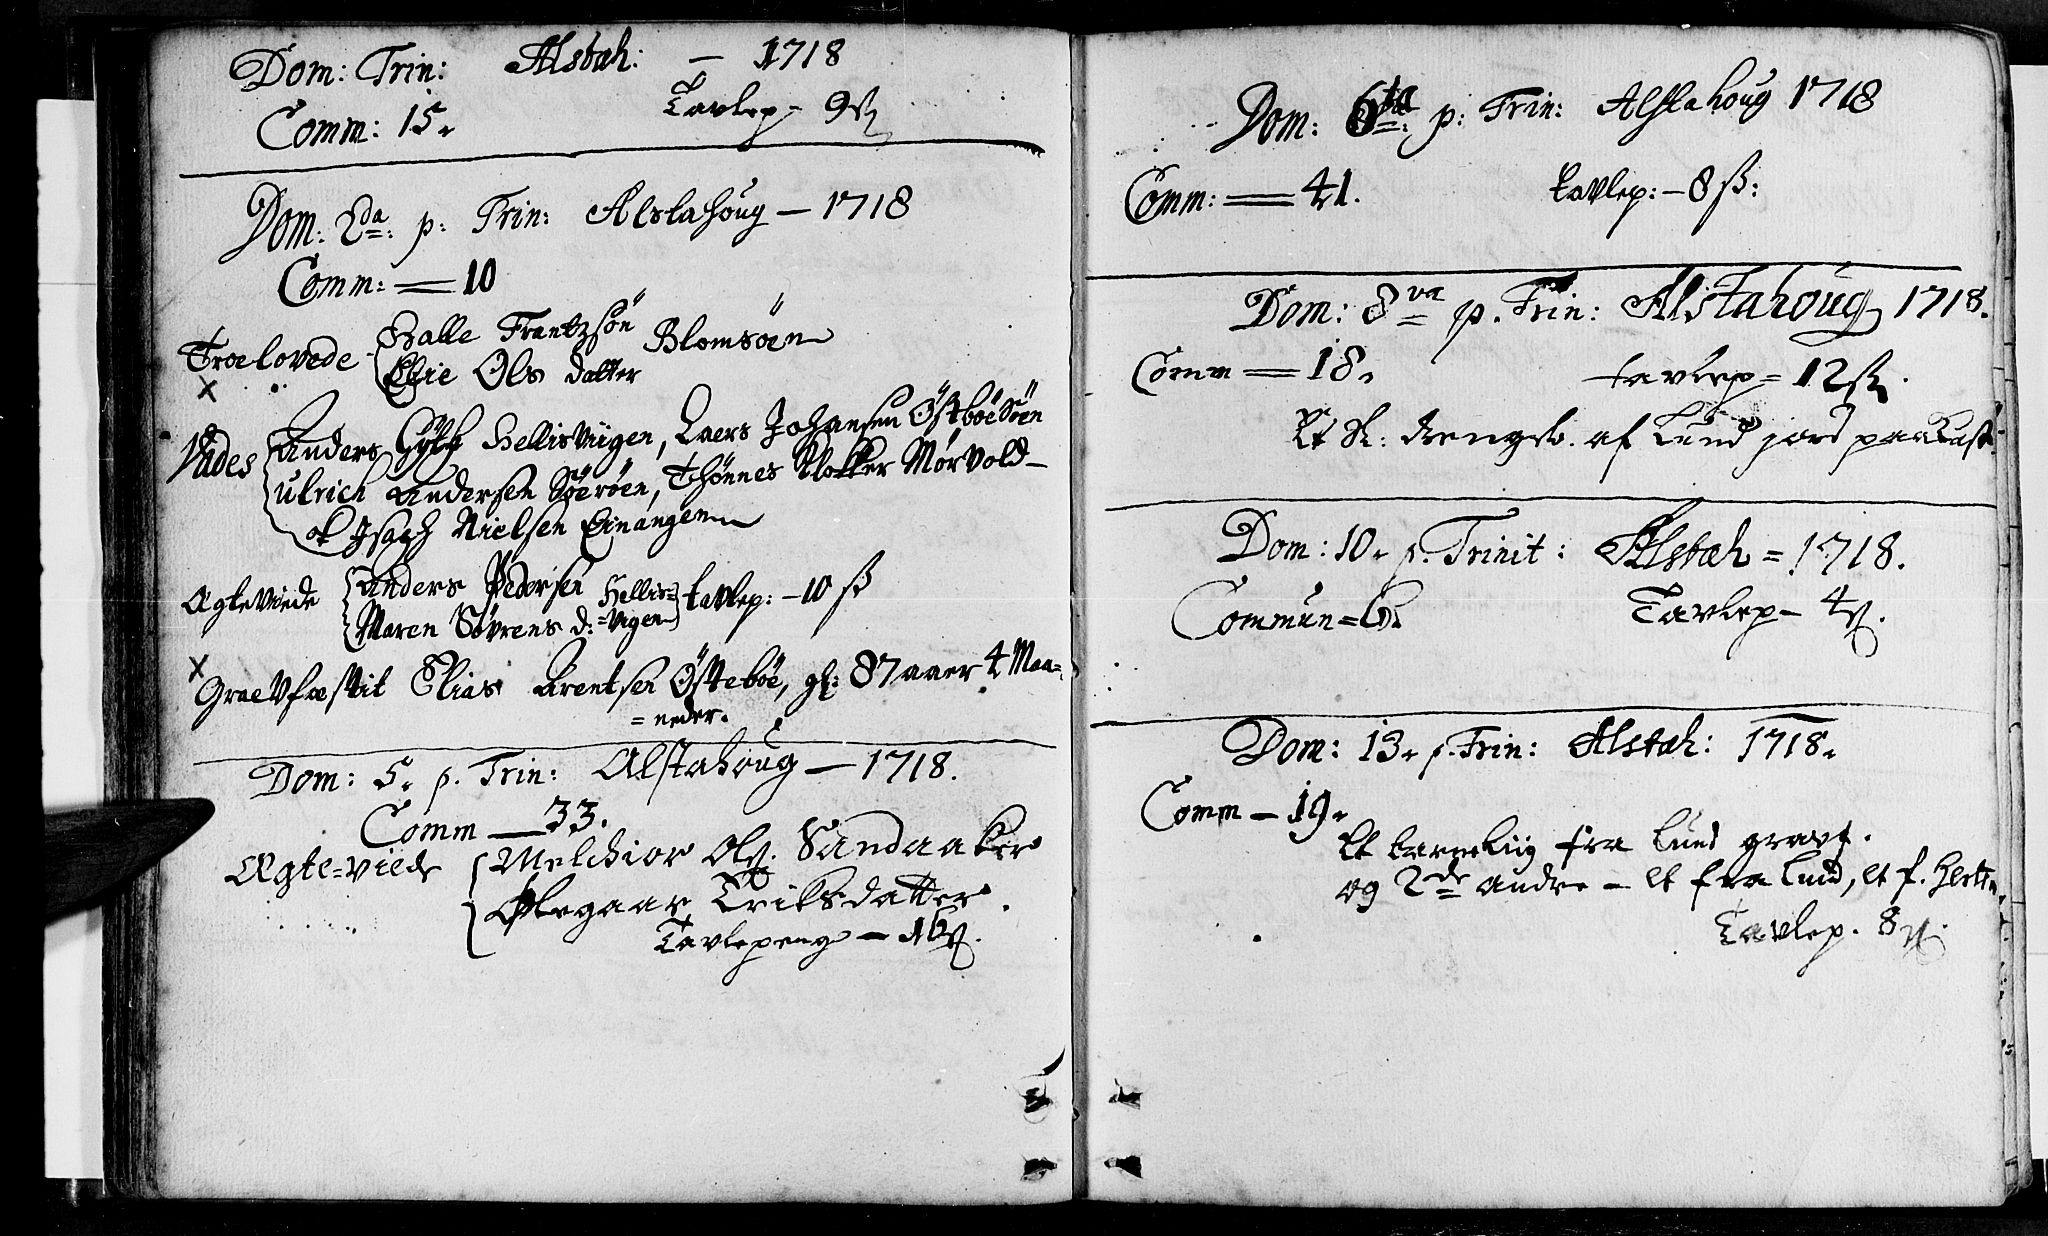 Dom: Trin: Alstah: — 1718
Comm: 15. Tavlep — 9 ß
Dom: 2da: p: Trin: Alstahoug — 1718
Comm: = 10
Troelovede Halle Frantzsön Blomsöen
Elsie Ols datter
Vades Anders Hellisviigen, Laers Johansen Östböe Söen
Ulrich Andersen Söeröen, Thönnes Klokker Mörvold
et Isach Nielsen Einangen
Ægteviede Anders Pedersen Hellis= tavlep: — 10 ß
Maren Sövrens d: =vigen
Graevfæstit Elias Arentsen Östeböe, gl: 87 aaer 4 Maa=
=neder.
Dom: 5. p. Trin: Alstahoug — 1718.
Comm — 33.
Ægte=viede Melchior Ols. Sandaaker
Olegaar Eriksdatter.
Tavlepeng — 16 ß.
Dom: 6ta: p: Trin: Alstahoug 1718
Comm: = 41. tavlep: — 8 ß:
Dom: 8va p. Trin: Alstahoug 1718.
Comm = 18. tavlep = 12 ß.
Et af Lund jord paa
Dom: 10. p. Trinit: Alstah = 1718.
Commun = 6. Tavlep — 4 ß.
Dom: 13. p. Trin: Alstah: 1718.
Comm — 19.
Et barneliig fra Lund
og 2de andre — et fra Lund, et f.
Tavlep. 8 ß.